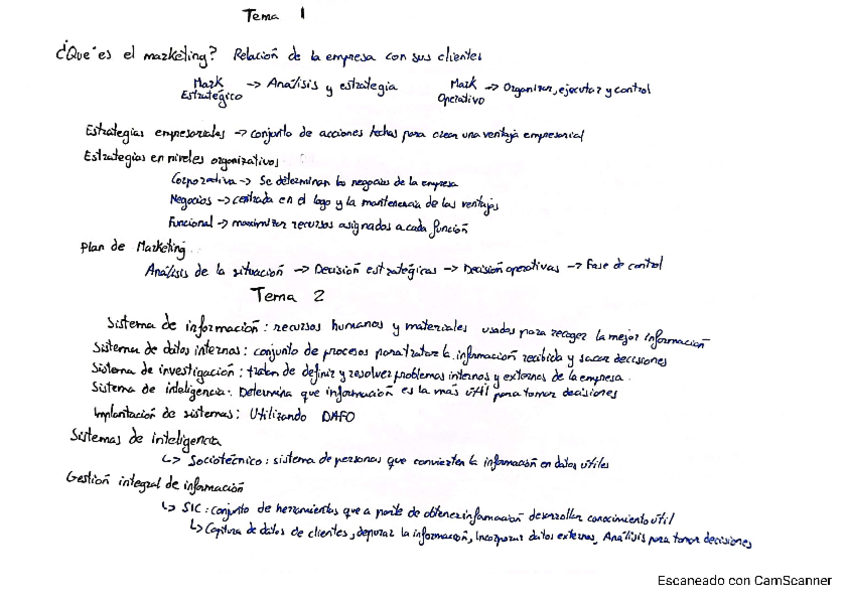 Tema 1
¿Que es el marketing? Relación de la empresa con sus clientes
Mark Estratégico -> Análisis y estrategia Mark Operativo -> Organizar, ejecutar y control
Estrategias empresariales -> conjunto de acciones hechas para crear una ventaja empresarial
Estrategias en niveles organizativos
Corporativa -> Se determinan los negocios de la empresa
Negocios -> centrada en el logo y la mantenencia de las ventajas
Funcional -> maximizar recursos asignados a cada función
Plan de Marketing
Análisis de la situación -> Decisión estratégicas -> Decisión operativas -> Fase de control
Tema 2
Sistema de información: recursos humanos y materiales usados para recoger la mejor información
Sistema de datos internos: conjunto de procesos para tratar la información recibida y sacar decisiones
Sistema de investigación: tratan de definir y resolver problemas internos y externos de la empresa.
Sistema de inteligencia: Determina que información es la más útil para tomar decisiones
Implantación de sistemas: Utilizando DAFO
Sistemas de inteligencia
↳ Sociotécnico: sistema de personas que convierten la información en datos útiles
Gestión integral de información
↳ SIC: conjunto de herramientas que a parte de obtener información desarrollan conocimiento útil
↳ Captura de datos de clientes, depurar la información, Incorporar datos externos, Análisis para tomar decisiones
Escaneado con CamScanner